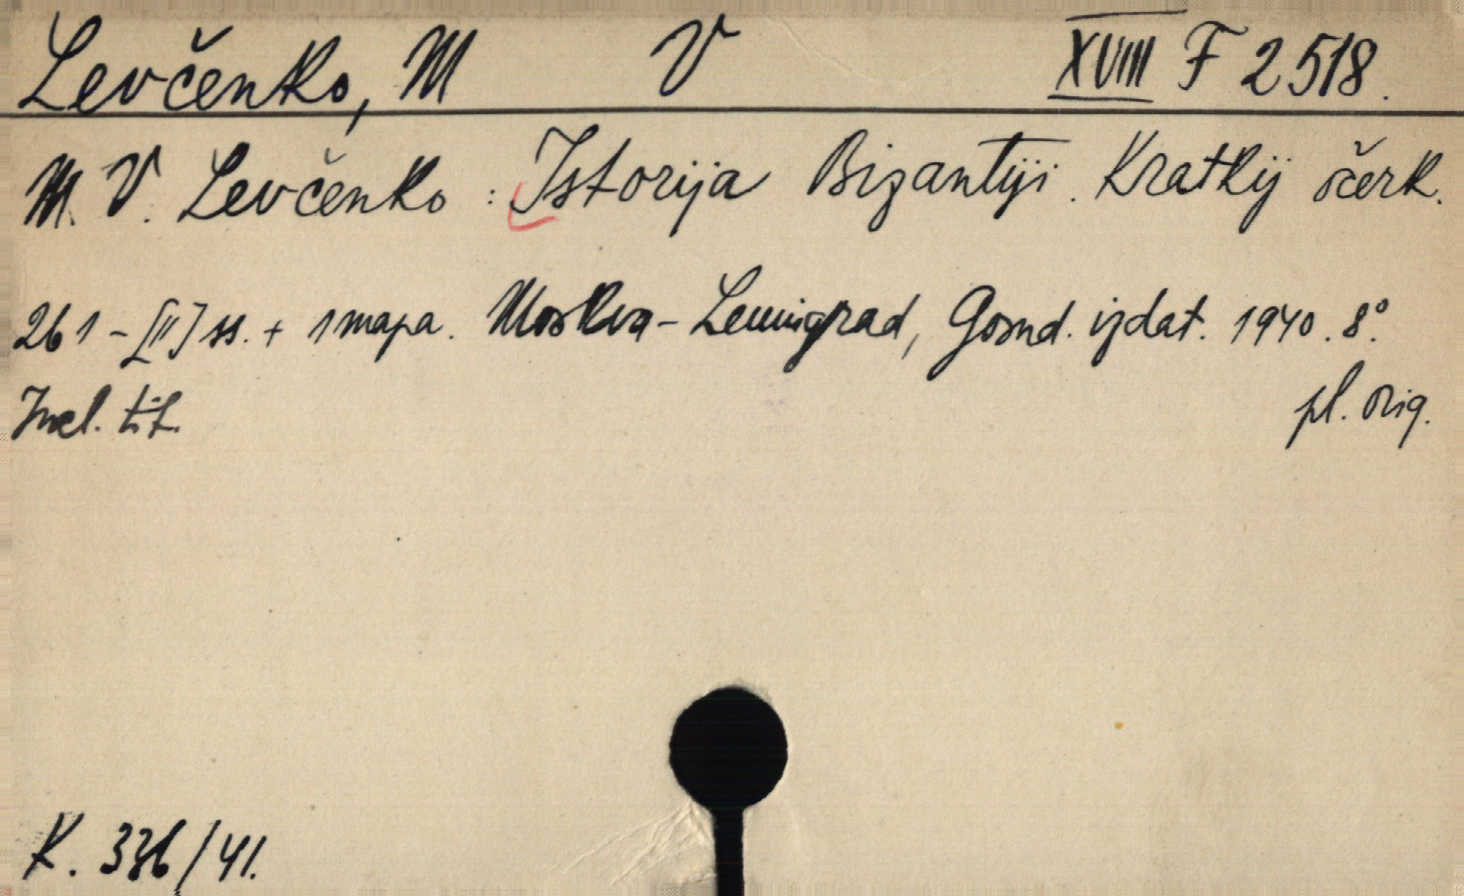 Levčenko, M V XVIII F 2518.
M. V. Levčenko : Istorija Bizantiji. Kratkij očerk.
261-[II] ss. + 1 mapa. Moskva-Leningrad, Gosud. izdat. 1940. 8°.
Incl. tit. pl. orig.
K. 336/41.